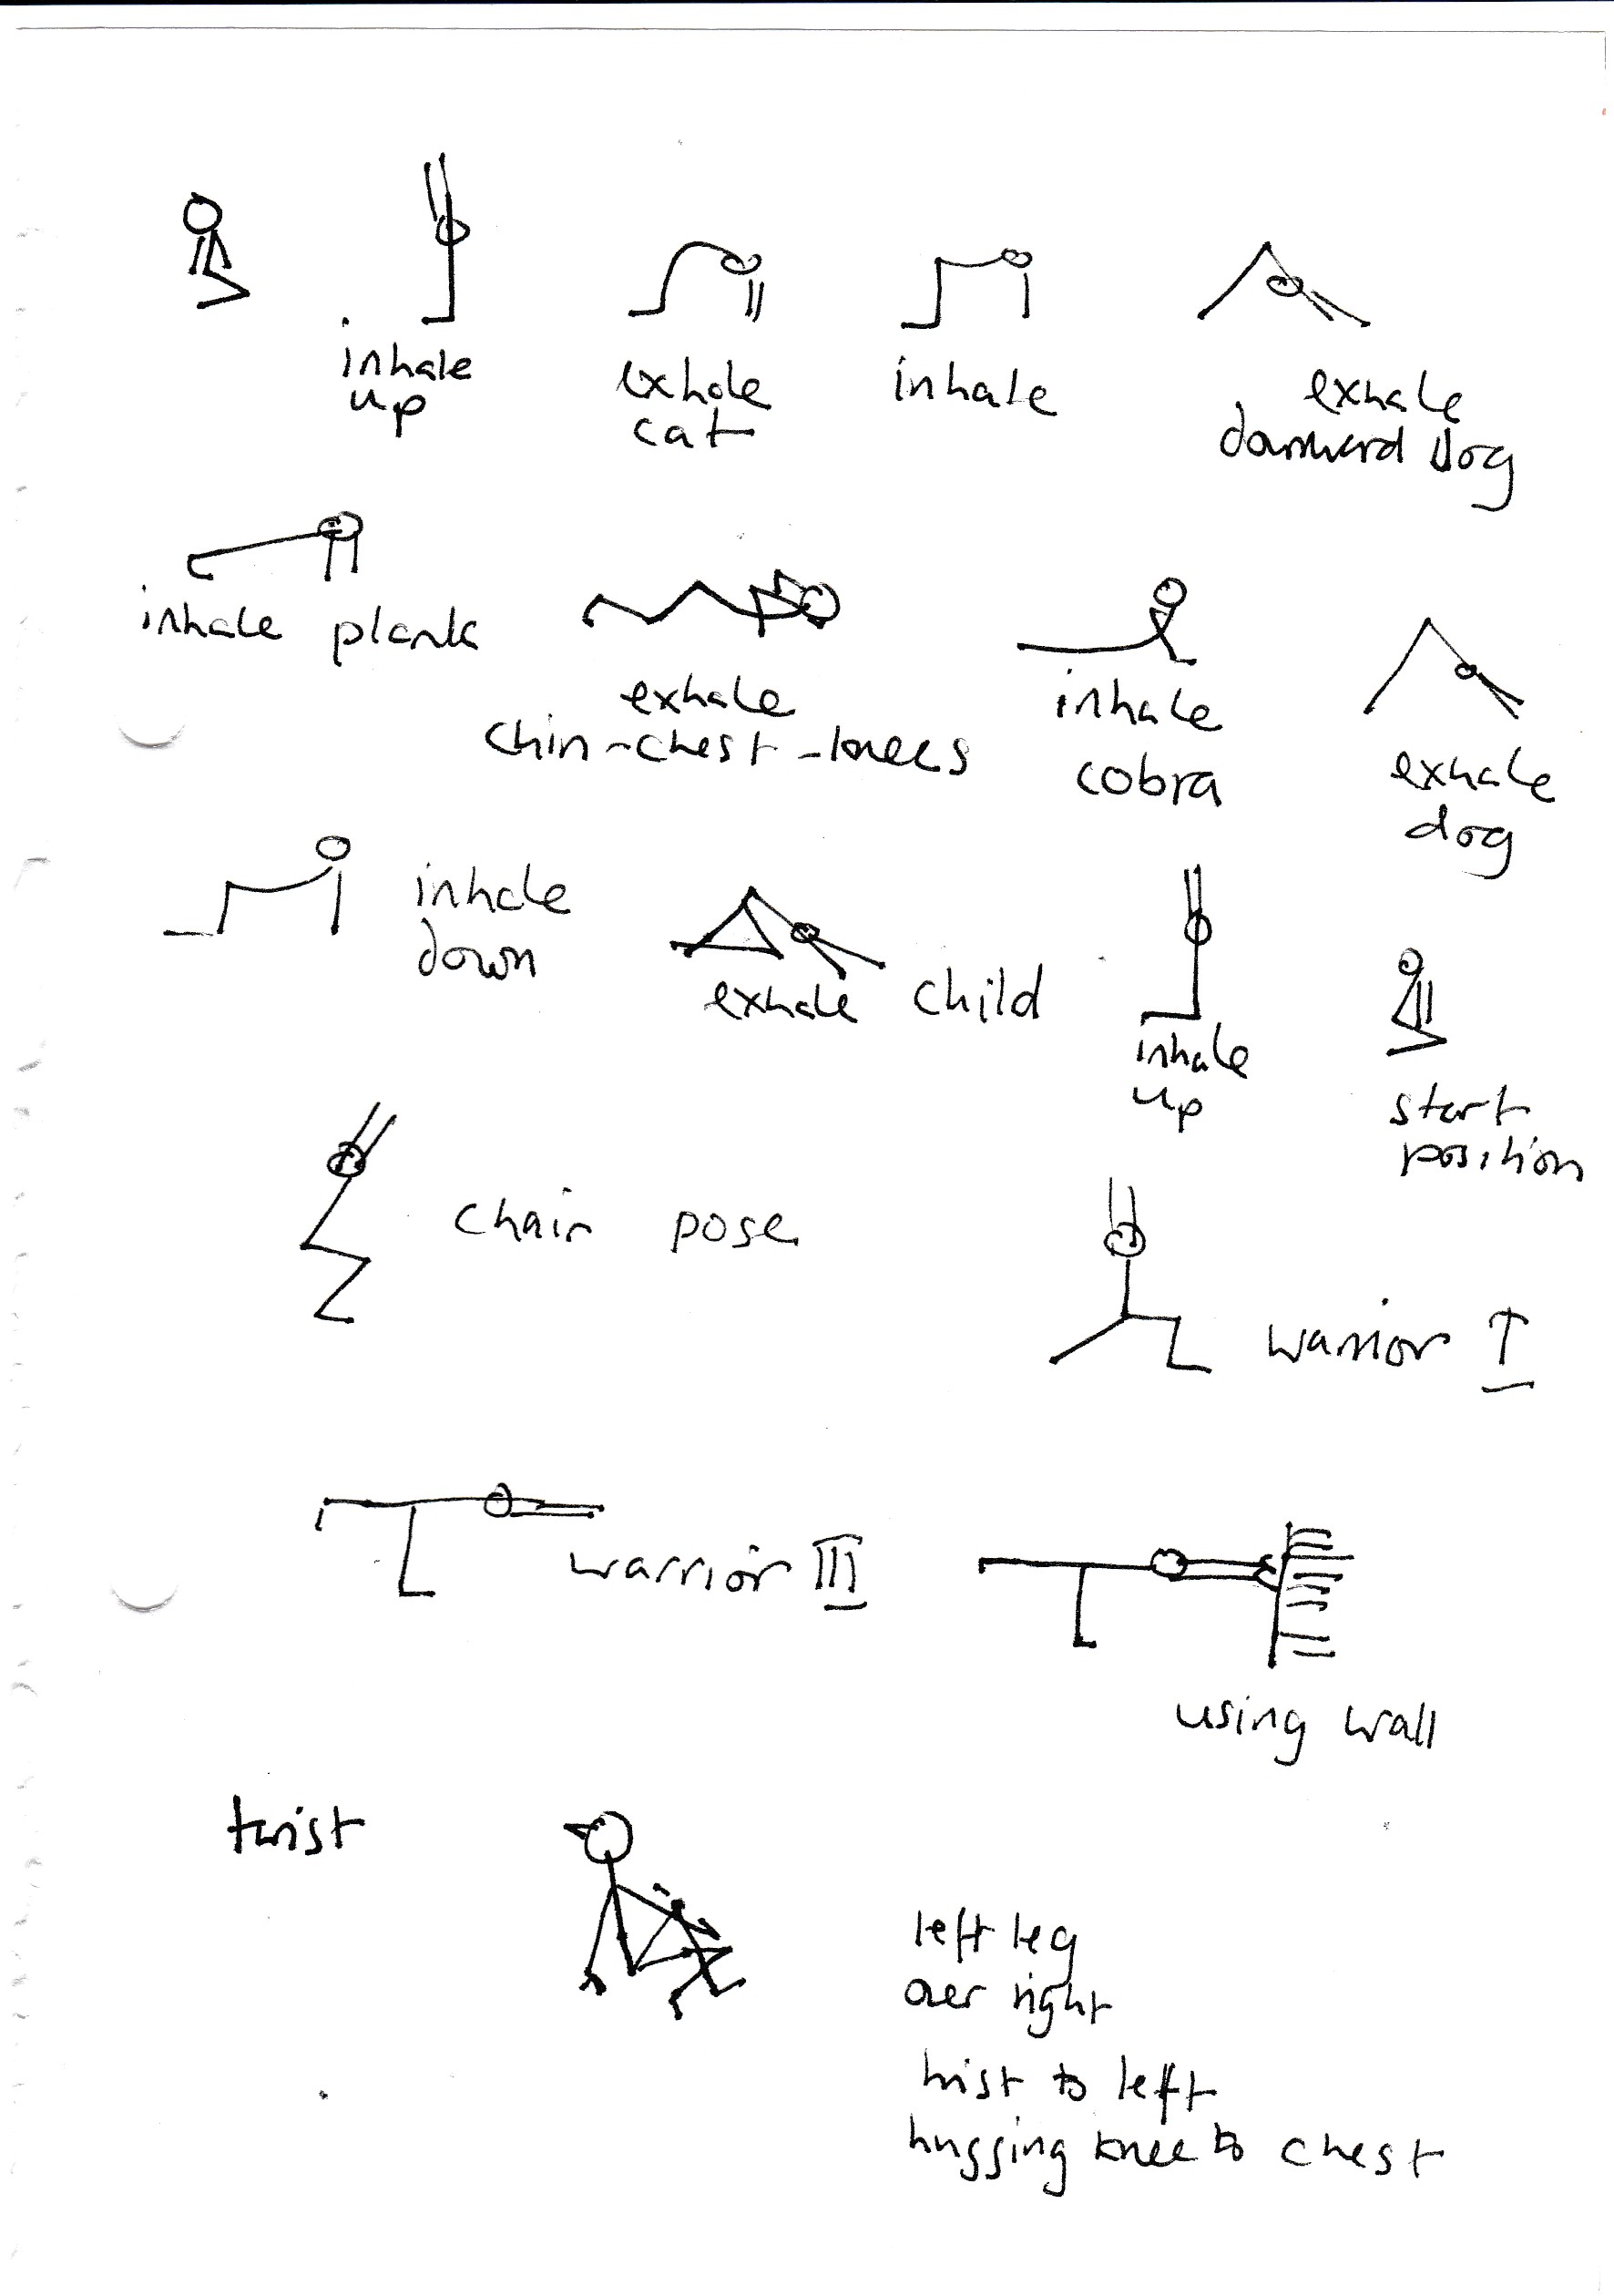 inhale
up
exhale
cat
inhale
exhale
downward Dog
inhale plank
exhale
chin-chest-knees
inhale
cobra
exhale
dog
inhale
down
exhale child
inhale
up
start
position
chair pose
warrior I
warrior III
using wall
twist
left leg
over right
twist to left
hugging knee to chest